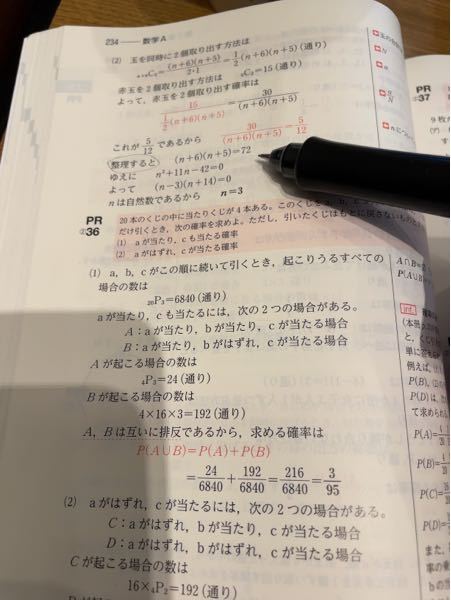 234 — 数学A
(2) 玉を同時に2個取り出す方法は
n+6C2=(n+6)(n+5)/2・1=1/2(n+6)(n+5)(通り)
赤玉を2個取り出す方法は 6C2=15(通り)
よって，赤玉を2個取り出す確率は
15/(1/2(n+6)(n+5))=30/((n+6)(n+5))
これが 5/12 であるから 30/((n+6)(n+5))=5/12
整理すると (n+6)(n+5)=72
ゆえに n²+11n−42=0
よって (n−3)(n+14)=0
nは自然数であるから n=3
PR
②36
20本のくじの中に当たりくじが4本ある。このくじを
だけ引くとき，次の確率を求めよ。ただし，引いたくじはもとに戻さないものと
(1) aが当たり，cも当たる確率
(2) aがはずれ，cが当たる確率
(1) a，b，cがこの順に続いて引くとき，起こりうるすべての
場合の数は
20P3=6840(通り)
aが当たり，cも当たるには，次の2つの場合がある。
A：aが当たり，bが当たり，cが当たる場合
B：aが当たり，bがはずれ，cが当たる場合
Aが起こる場合の数は
4P3=24(通り)
Bが起こる場合の数は
4×16×3=192(通り)
A，Bは互いに排反であるから，求める確率は
P(A∪B)=P(A)+P(B)
=24/6840+192/6840=216/6840=3/95
(2) aがはずれ，cが当たるには，次の2つの場合がある。
C：aがはずれ，bが当たり，cが当たる場合
D：aがはずれ，bがはずれ，cが当たる場合
Cが起こる場合の数は
16×4P2=192(通り)
A∩B=
P(A∪B)
inf.
(本冊
例えば，
P(B)，
P(D)は，
て求められ
P(A)=
P(B)=
P(C)=
P(D)=
また，
PR
②37
9枚